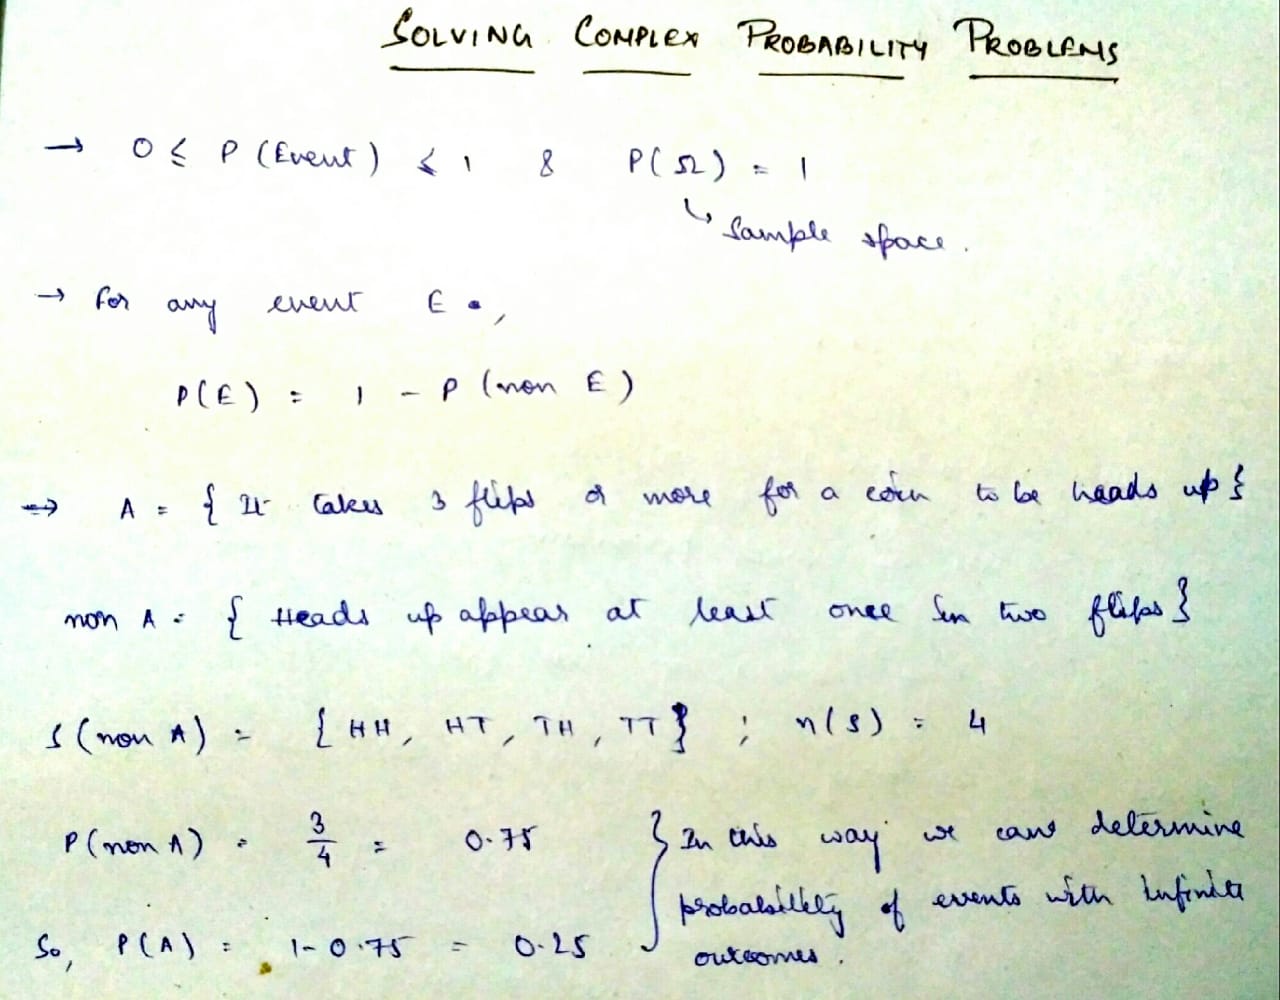 SOLVING COMPLEX PROBABILITY PROBLEMS
→ 0 ≤ P (Event) ≤ 1 & P(Ω) = 1
↳ Sample space.
→ for any event E ,
P(E) = 1 - P (non E)
→ A = { It takes 3 flips or more for a coin to be heads up }
non A = { Heads up appear at least once in two flips }
S (non A) = { HH, HT, TH, TT } ; n(S) = 4
P(non A) = 3/4 = 0.75 } In this way we can determine
probability of events with infinite
So, P(A) = 1-0.75 = 0.25 outcomes.